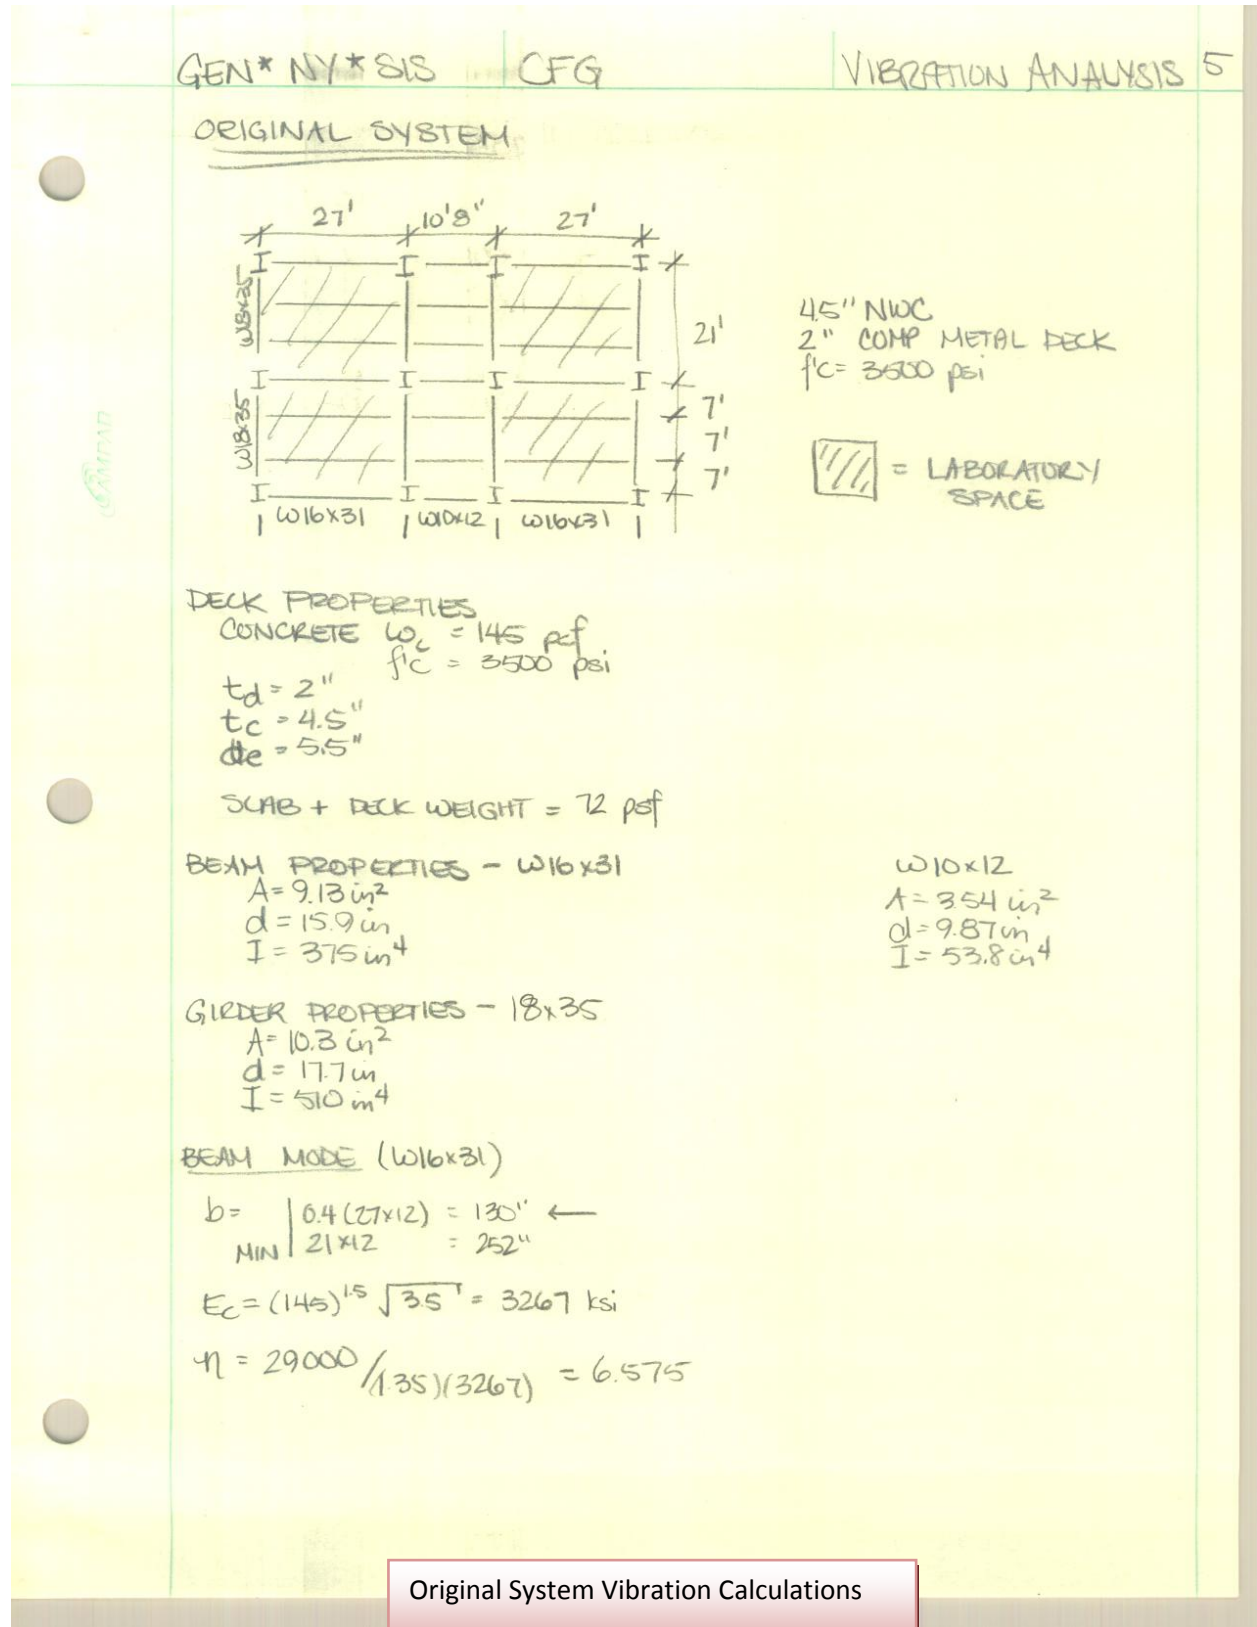 GEN* NY* SIS CFG VIBRATION ANALYSIS 5
ORIGINAL SYSTEM
27' 10'8" 27'
W18x35
21'
4.5" NWC
2" COMP METAL DECK
f'c = 3500 psi
W18x35
7'
7'
7'
= LABORATORY
SPACE
W16x31 W10x12 W16x31
DECK PROPERTIES
CONCRETE ωc = 145 pcf
f'c = 3500 psi
td = 2"
tc = 4.5"
de = 5.5"
SLAB + DECK WEIGHT = 72 psf
BEAM PROPERTIES - W16x31
A = 9.13 in²
d = 15.9 in
I = 375 in⁴
W10x12
A = 3.54 in²
d = 9.87 in
I = 53.8 in⁴
GIRDER PROPERTIES - 18x35
A = 10.3 in²
d = 17.7 in
I = 510 in⁴
BEAM MODE (W16x31)
b = 0.4 (27x12) = 130" ←
MIN 21x12 = 252"
Ec = (145)^1.5 √3.5 = 3267 ksi
n = 29000/(1.35)(3267) = 6.575
Original System Vibration Calculations